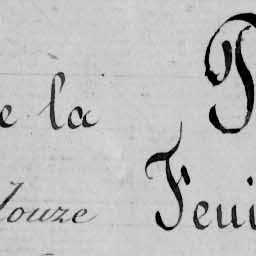 e la P
Douze Feui